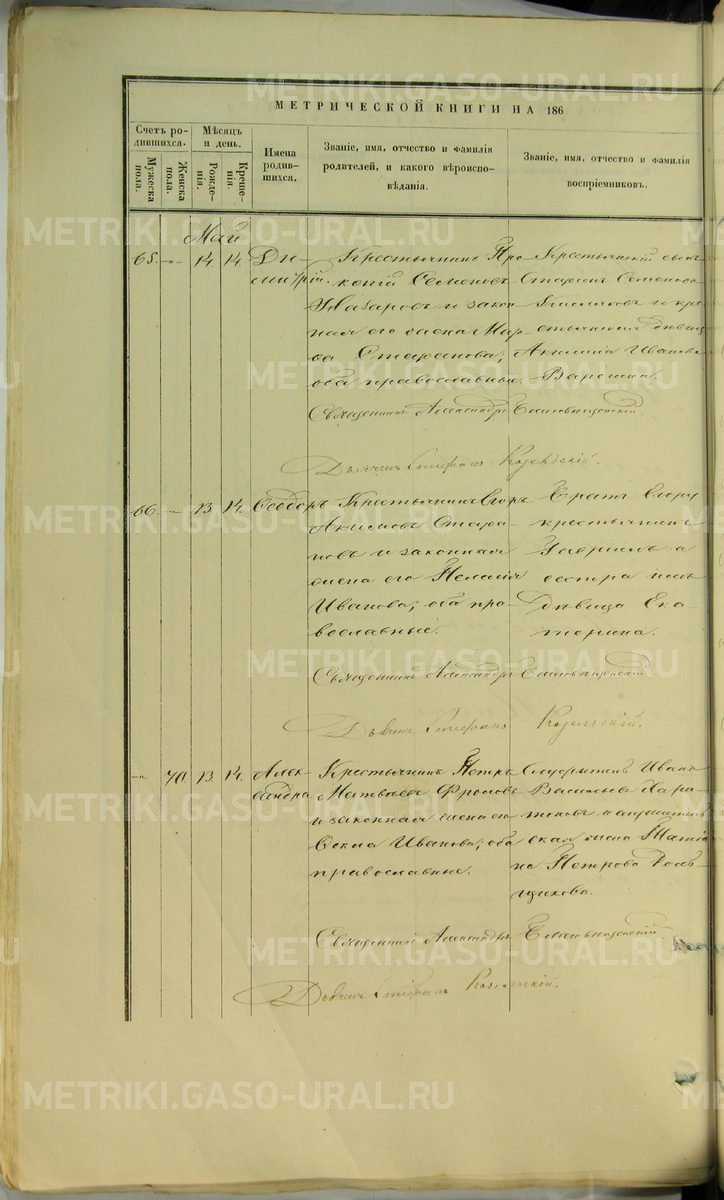 МЕТРИЧЕСКОЙ КНИГИ НА 186
Счетъ родившихся.
Мужеска пола.
Женска пола.
Мѣсяцъ и день.
Рожденія.
Крещенія.
Имена родившихся.
Званіе, имя, отчество и фамилія родителей, и какого вѣроисповѣданія.
Званіе, имя, отчество и фамилія воспріемниковъ.
Май
65. -"- 14. 14. Дмитрій.
Крестьянинъ Про-
копій Семеновъ
Назаровъ и закон
ная его жена Мар-
ѳа Стефанова,
оба православные.
Крестьянскій сынъ
Стефанъ Семеновъ
и кре
стьянская дѣвица
Иванова
Священникъ Александръ
Дьячекъ Стефанъ
66. - 13. 14. Ѳеодоръ
Крестьянинъ Егоръ
Акимовъ Стафа-
новъ и законная
жена его Пелагія
Иванова, оба пра-
вославные.
Братъ Егору
крестьянинъ
Гавріилъ а
сестра имъ
дѣвица Ека-
терина.
Священникъ Александръ
Дьячекъ Стефанъ
-"- 70. 13. 14. Алек-
сандра
Крестьянинъ Петръ
Матвѣевъ Фроловъ
и законная жена его
Ѳекла Иванова, оба
православные.
Иванъ
Васильевъ Хари-
тоновъ и
ская жена Татіа
на Петрова
Священникъ Александръ
Дьячекъ Стефанъ
METRIKI.GASO-URAL.RU